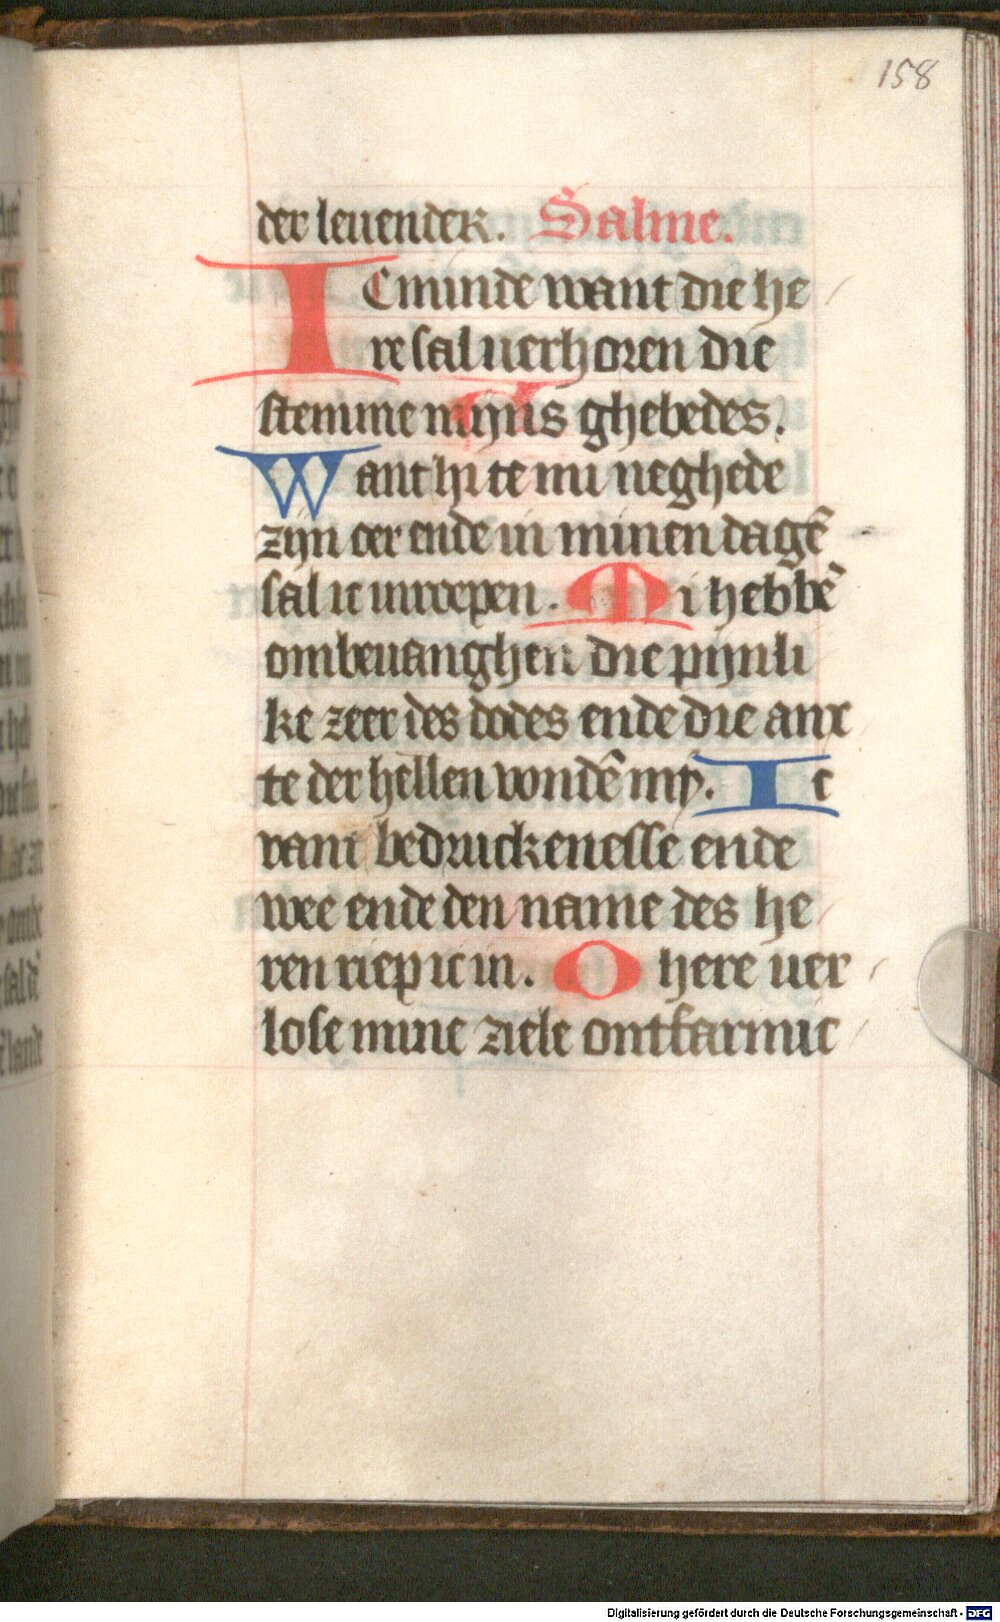 158
der leuender. Salme.
IC minde want die he
re sal uerhoren die
stemme myns ghebedes.
Want hi te mi neghede
zijn oer ende in minen dagē
sal ic inroepen. Mi hebbē
ombeuanghen die pijnli
ke zeer des dodes ende die anx
te der hellen vondē my. Ic
vant bedruckenesse ende
wee ende den name des he
ren riep ic in. O here uer
lose mine ziele ontfarmic
Digitalisierung gefördert durch die Deutsche Forschungsgemeinschaft - DFG